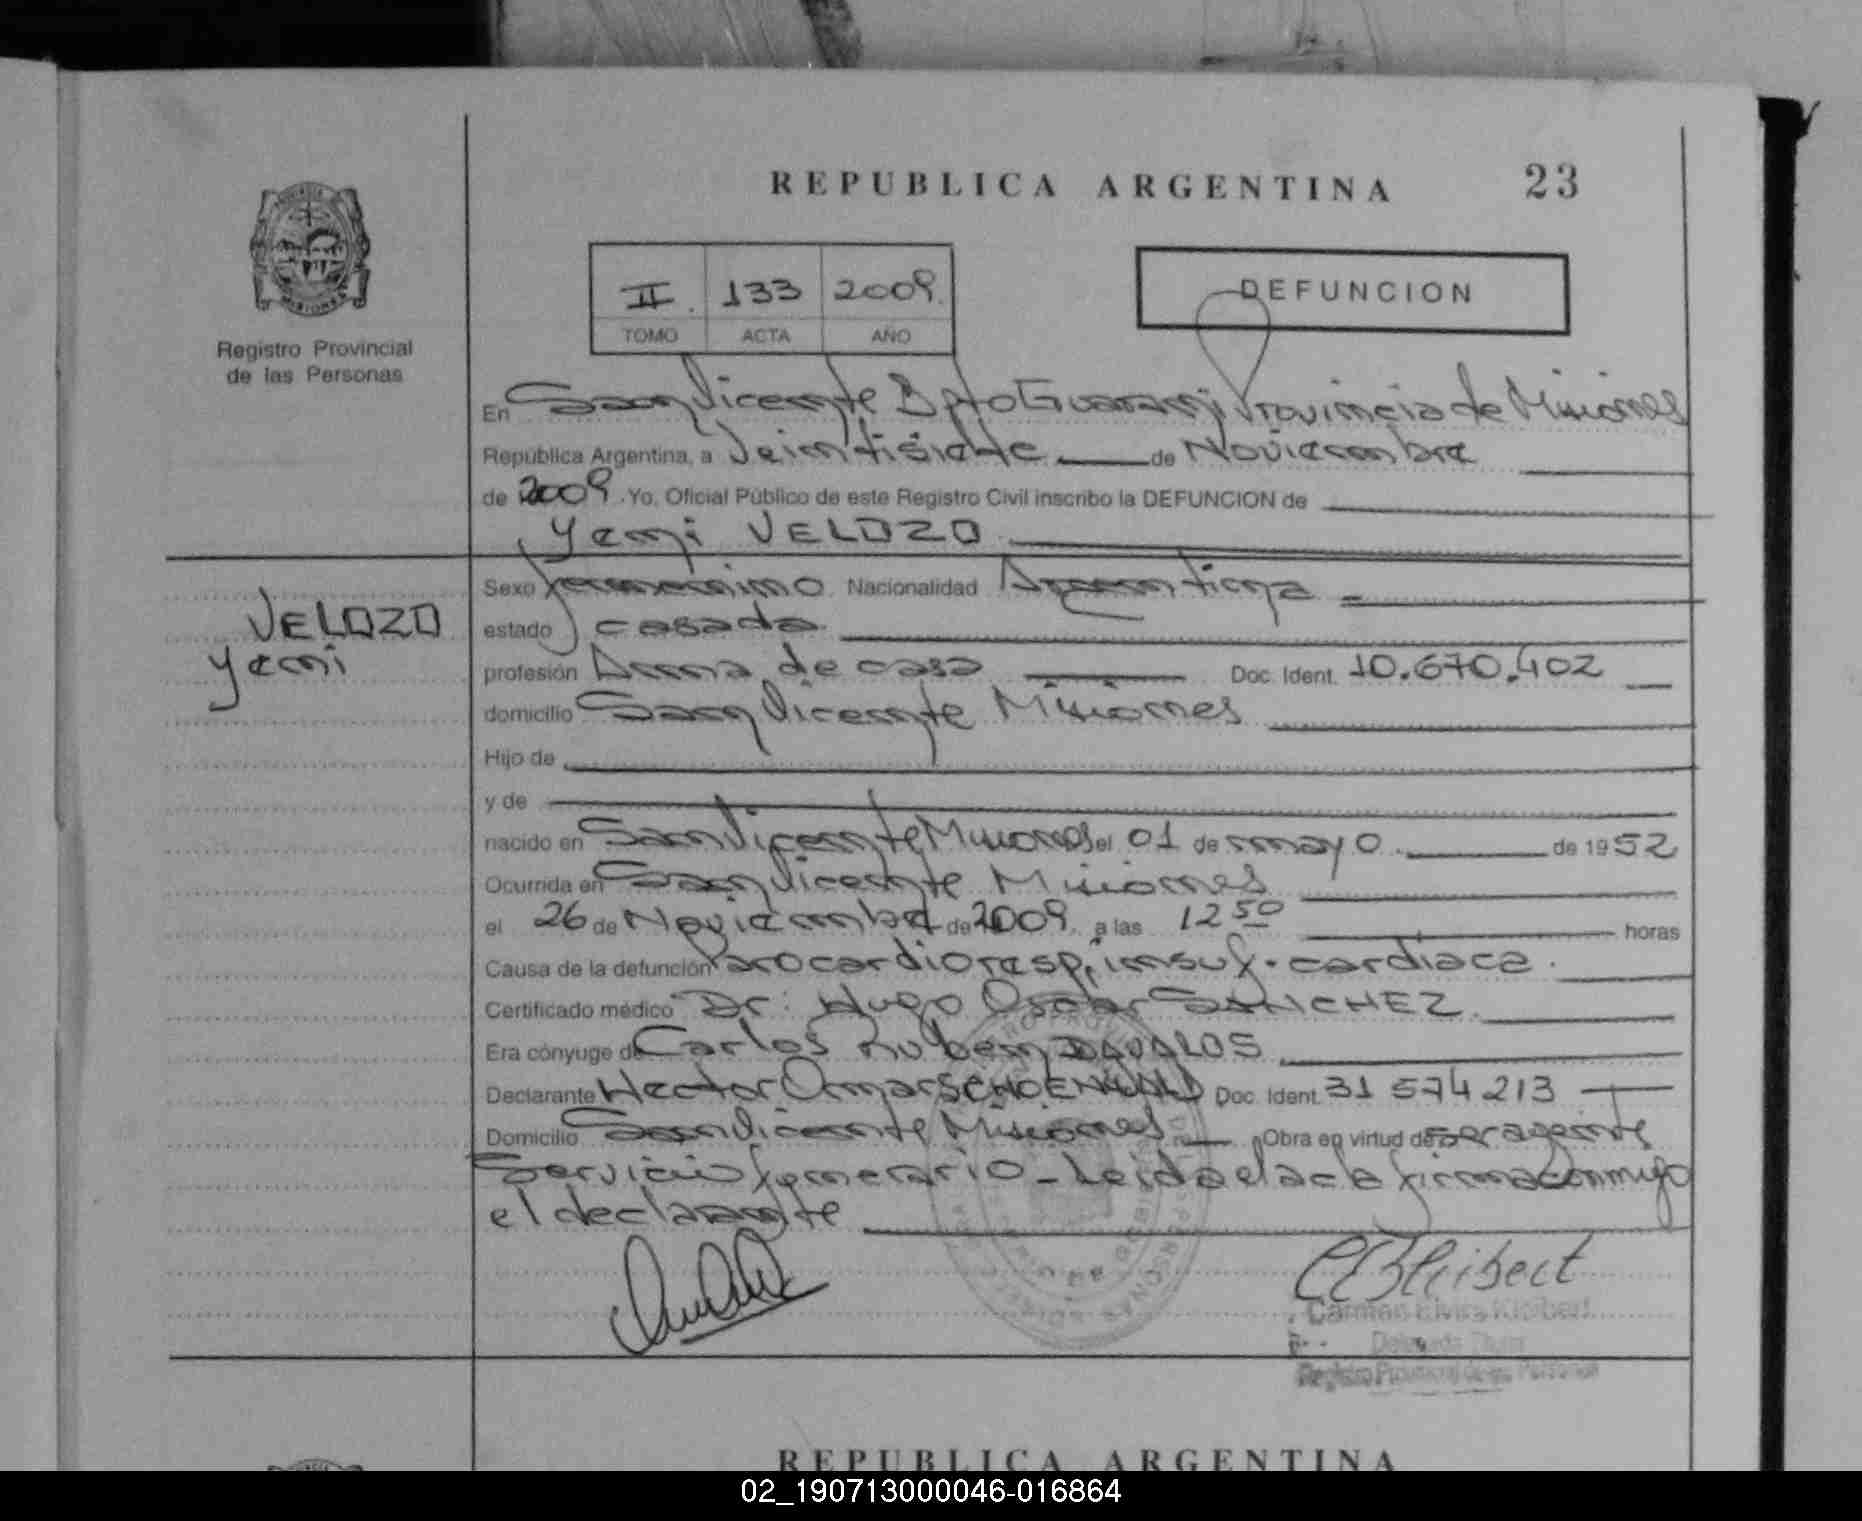 REPUBLICA ARGENTINA 23
Registro Provincial
de las Personas
II. 133 2009.
TOMO ACTA AÑO
DEFUNCION
En San Vicente Dpto Guarani Provincia de Misiones
República Argentina, a Veintisiete de Noviembre
de 2009. Yo, Oficial Público de este Registro Civil inscribo la DEFUNCION de
Yeni VELOZO
VELOZO
Yeni
Sexo femenino Nacionalidad Argentina
estado casada
profesión Ama de casa Doc. Ident. 10.670.402
domicilio San Vicente Misiones
Hijo de
y de
nacido en San Vicente Misiones el 01 de mayo de 1952
Ocurrida en San Vicente Misiones
el 26 de Noviembre de 2009 a las 12 50 horas
Causa de la defunción Parocardioresp, insuf. cardiaca.
Certificado médico Dr: Hugo Oscar SANCHEZ.
Era cónyuge de Carlos Ruben DAVALOS
Declarante Hector Omar SCHOENWALD Doc. Ident. 31 574 213
Domicilio San Vicente Misiones Obra en virtud de ser agente
Servicio funerario - Leida el acta firma conmigo
el declarante
Carmen Elvira Kleibert
Registro Provincial de las Personas
REPUBLICA ARGENTINA
02_190713000046-016864